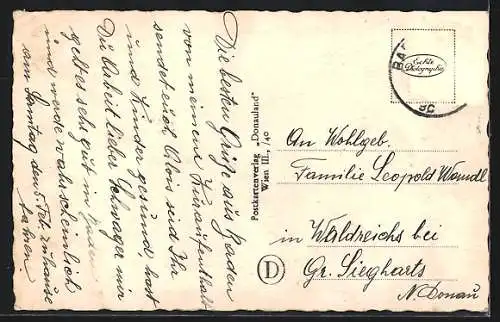 Die besten Grüße aus Baden
von meinem Kuraufenthalt
sendet euch Alois seid Ihr
und Kinder gesund, hast
Du Arbeit lieber Schwager mir
geht es sehr gut in
und werde wahrscheinlich
am Samstag den 5. Feb. zuhause
fahren.
Postkartenverlag „Donauland“
Wien III., /40
BA
Echte
Photographie
An Wohlgeb.
Familie Leopold Wandl
in Waldreichs bei
D
Gr. Siegharts
N. Donau